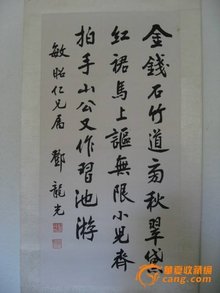 金錢石竹道高秋翠袋
紅裙馬上謳無限小兒齊
拍手山公又作習池游
敏昭仁兄属 鄧龍光
华夏收藏网